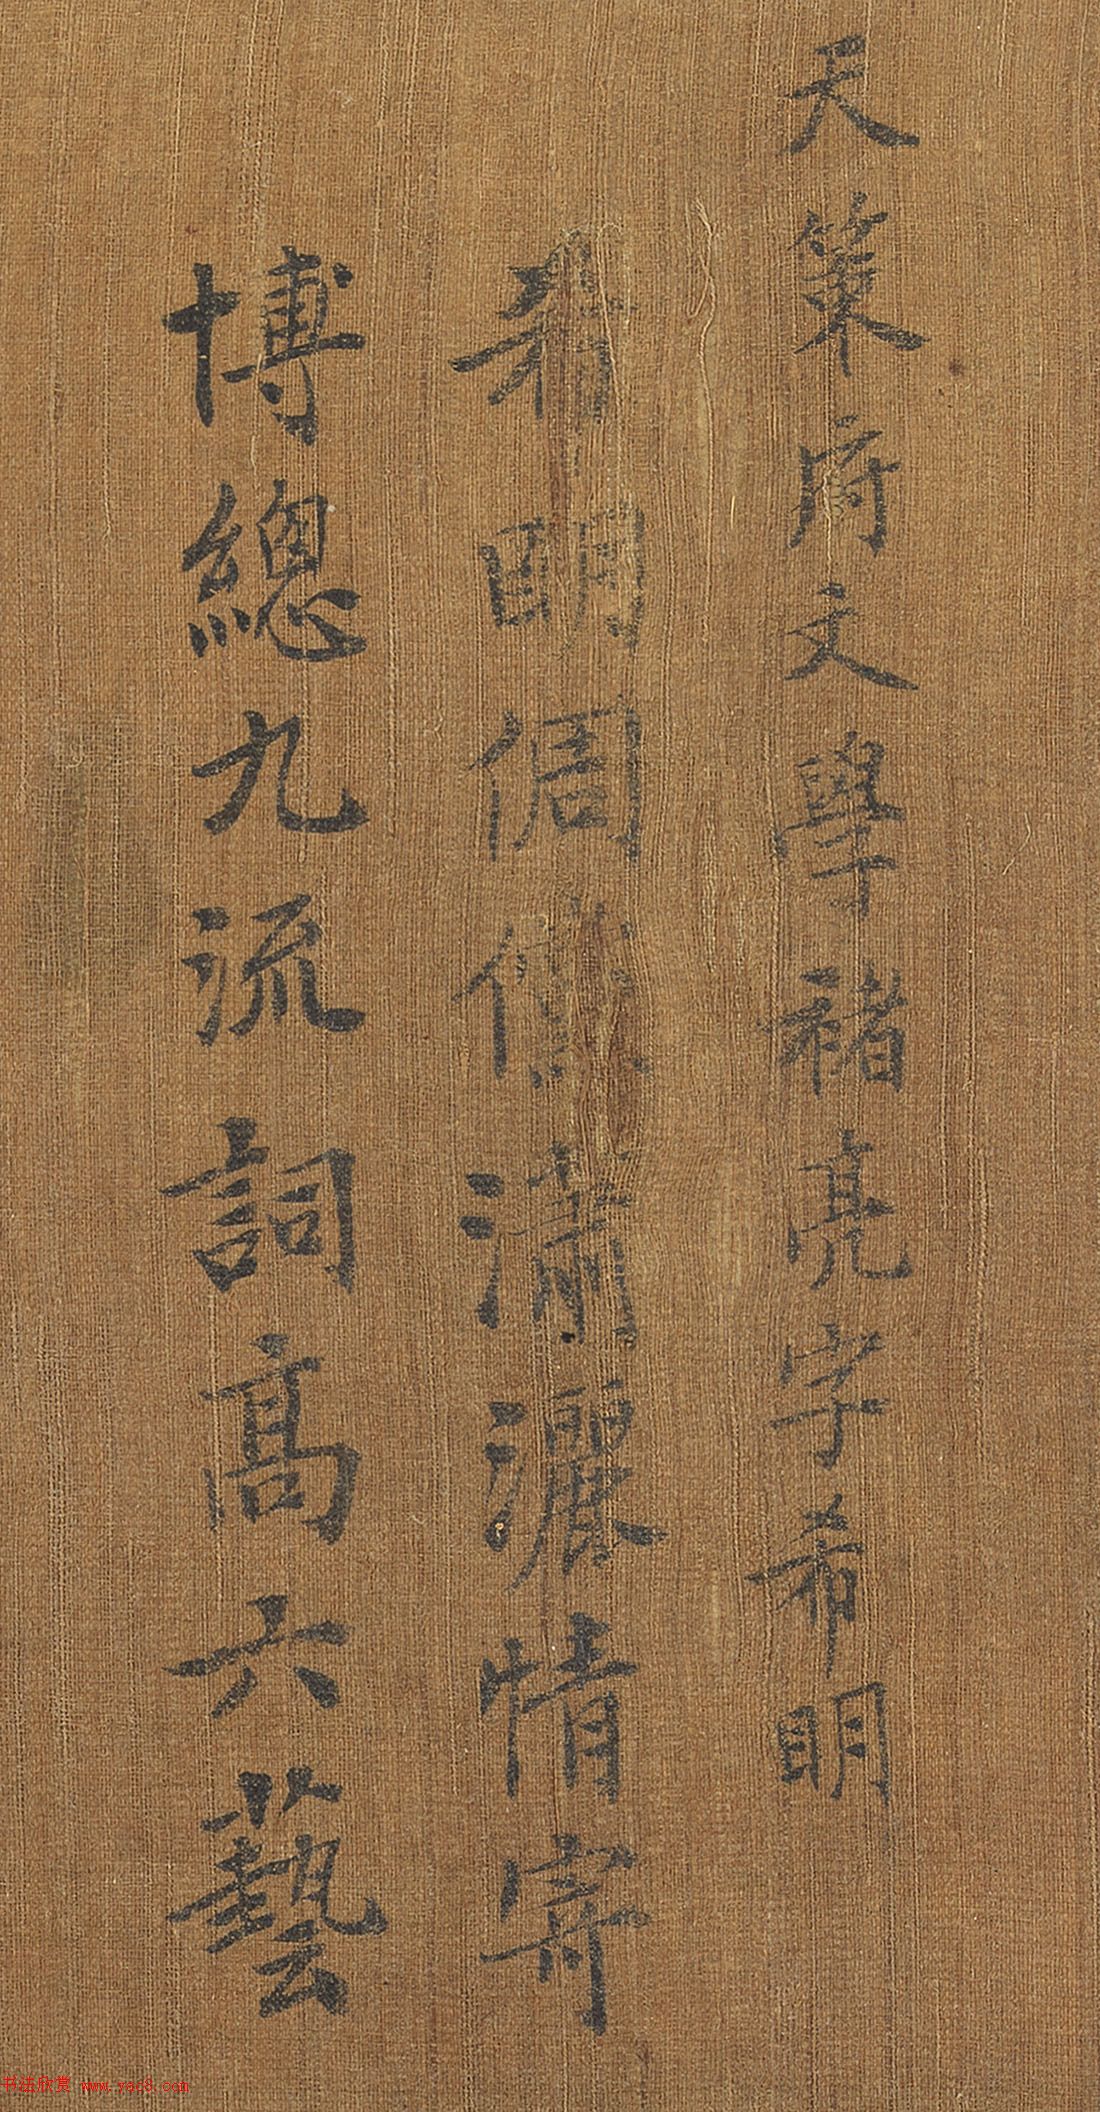 天策府文學褚亮字希明
希明倜儻瀟灑情寄
博總九流詞高六藝
书法欣赏 www.yac8.com